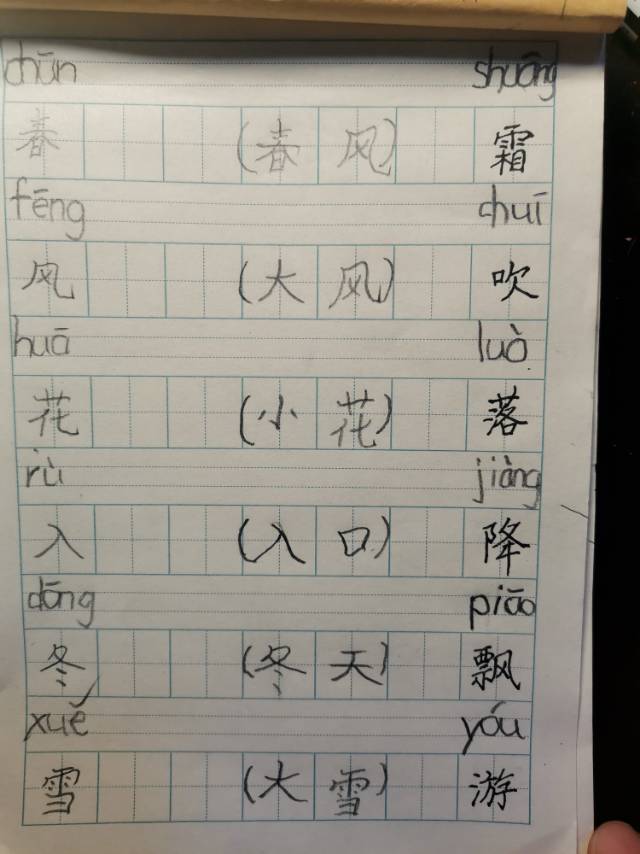 chūn shuāng
春 (春风) 霜
fēng chuī
风 (大风) 吹
huā luò
花 (小花) 落
rù jiàng
入 (入口) 降
dōng piāo
冬 (冬天) 飘
xuě yóu
雪 (大雪) 游